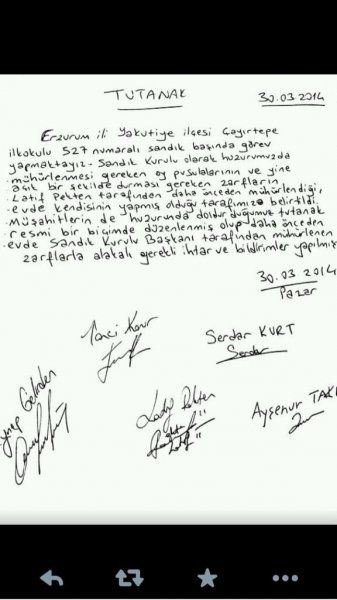 TUTANAK
30.03.2014
Erzurum ili Yakutiye ilçesi Çayırtepe
ilkokulu 527 numaralı sandık başında görev
yapmaktayız. Sandık Kurulu olarak huzurumuzda
mühürlenmesi gereken oy pusulalarının ve yine
açık bir şekilde durması gereken zarfların
Latif Pekten tarafından daha önceden mühürlendiği,
evde kendisinin yapmış olduğu tarafımıza belirtildi.
Müşahitlerin de huzurunda doldurduğumuz tutanak
resmi bir biçimde düzenlenmiş olup daha önceden
evde Sandık Kurulu Başkanı tarafından mühürlenen
zarflarla alakalı gerekli ihtar ve bildirimler yapılmış
30.03.2014
Pazar
Serdar KURT
Serdar
Latif Pekten
Ayşenur TAK